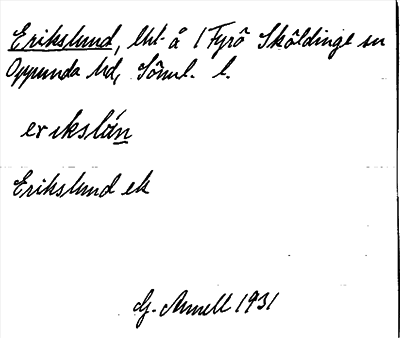 Erikslund, lht å 1 Fyrö Sköldinge sn
Oppunda hd, Söml. l.
erikslán
Erikslund ek
G. Annell 1931